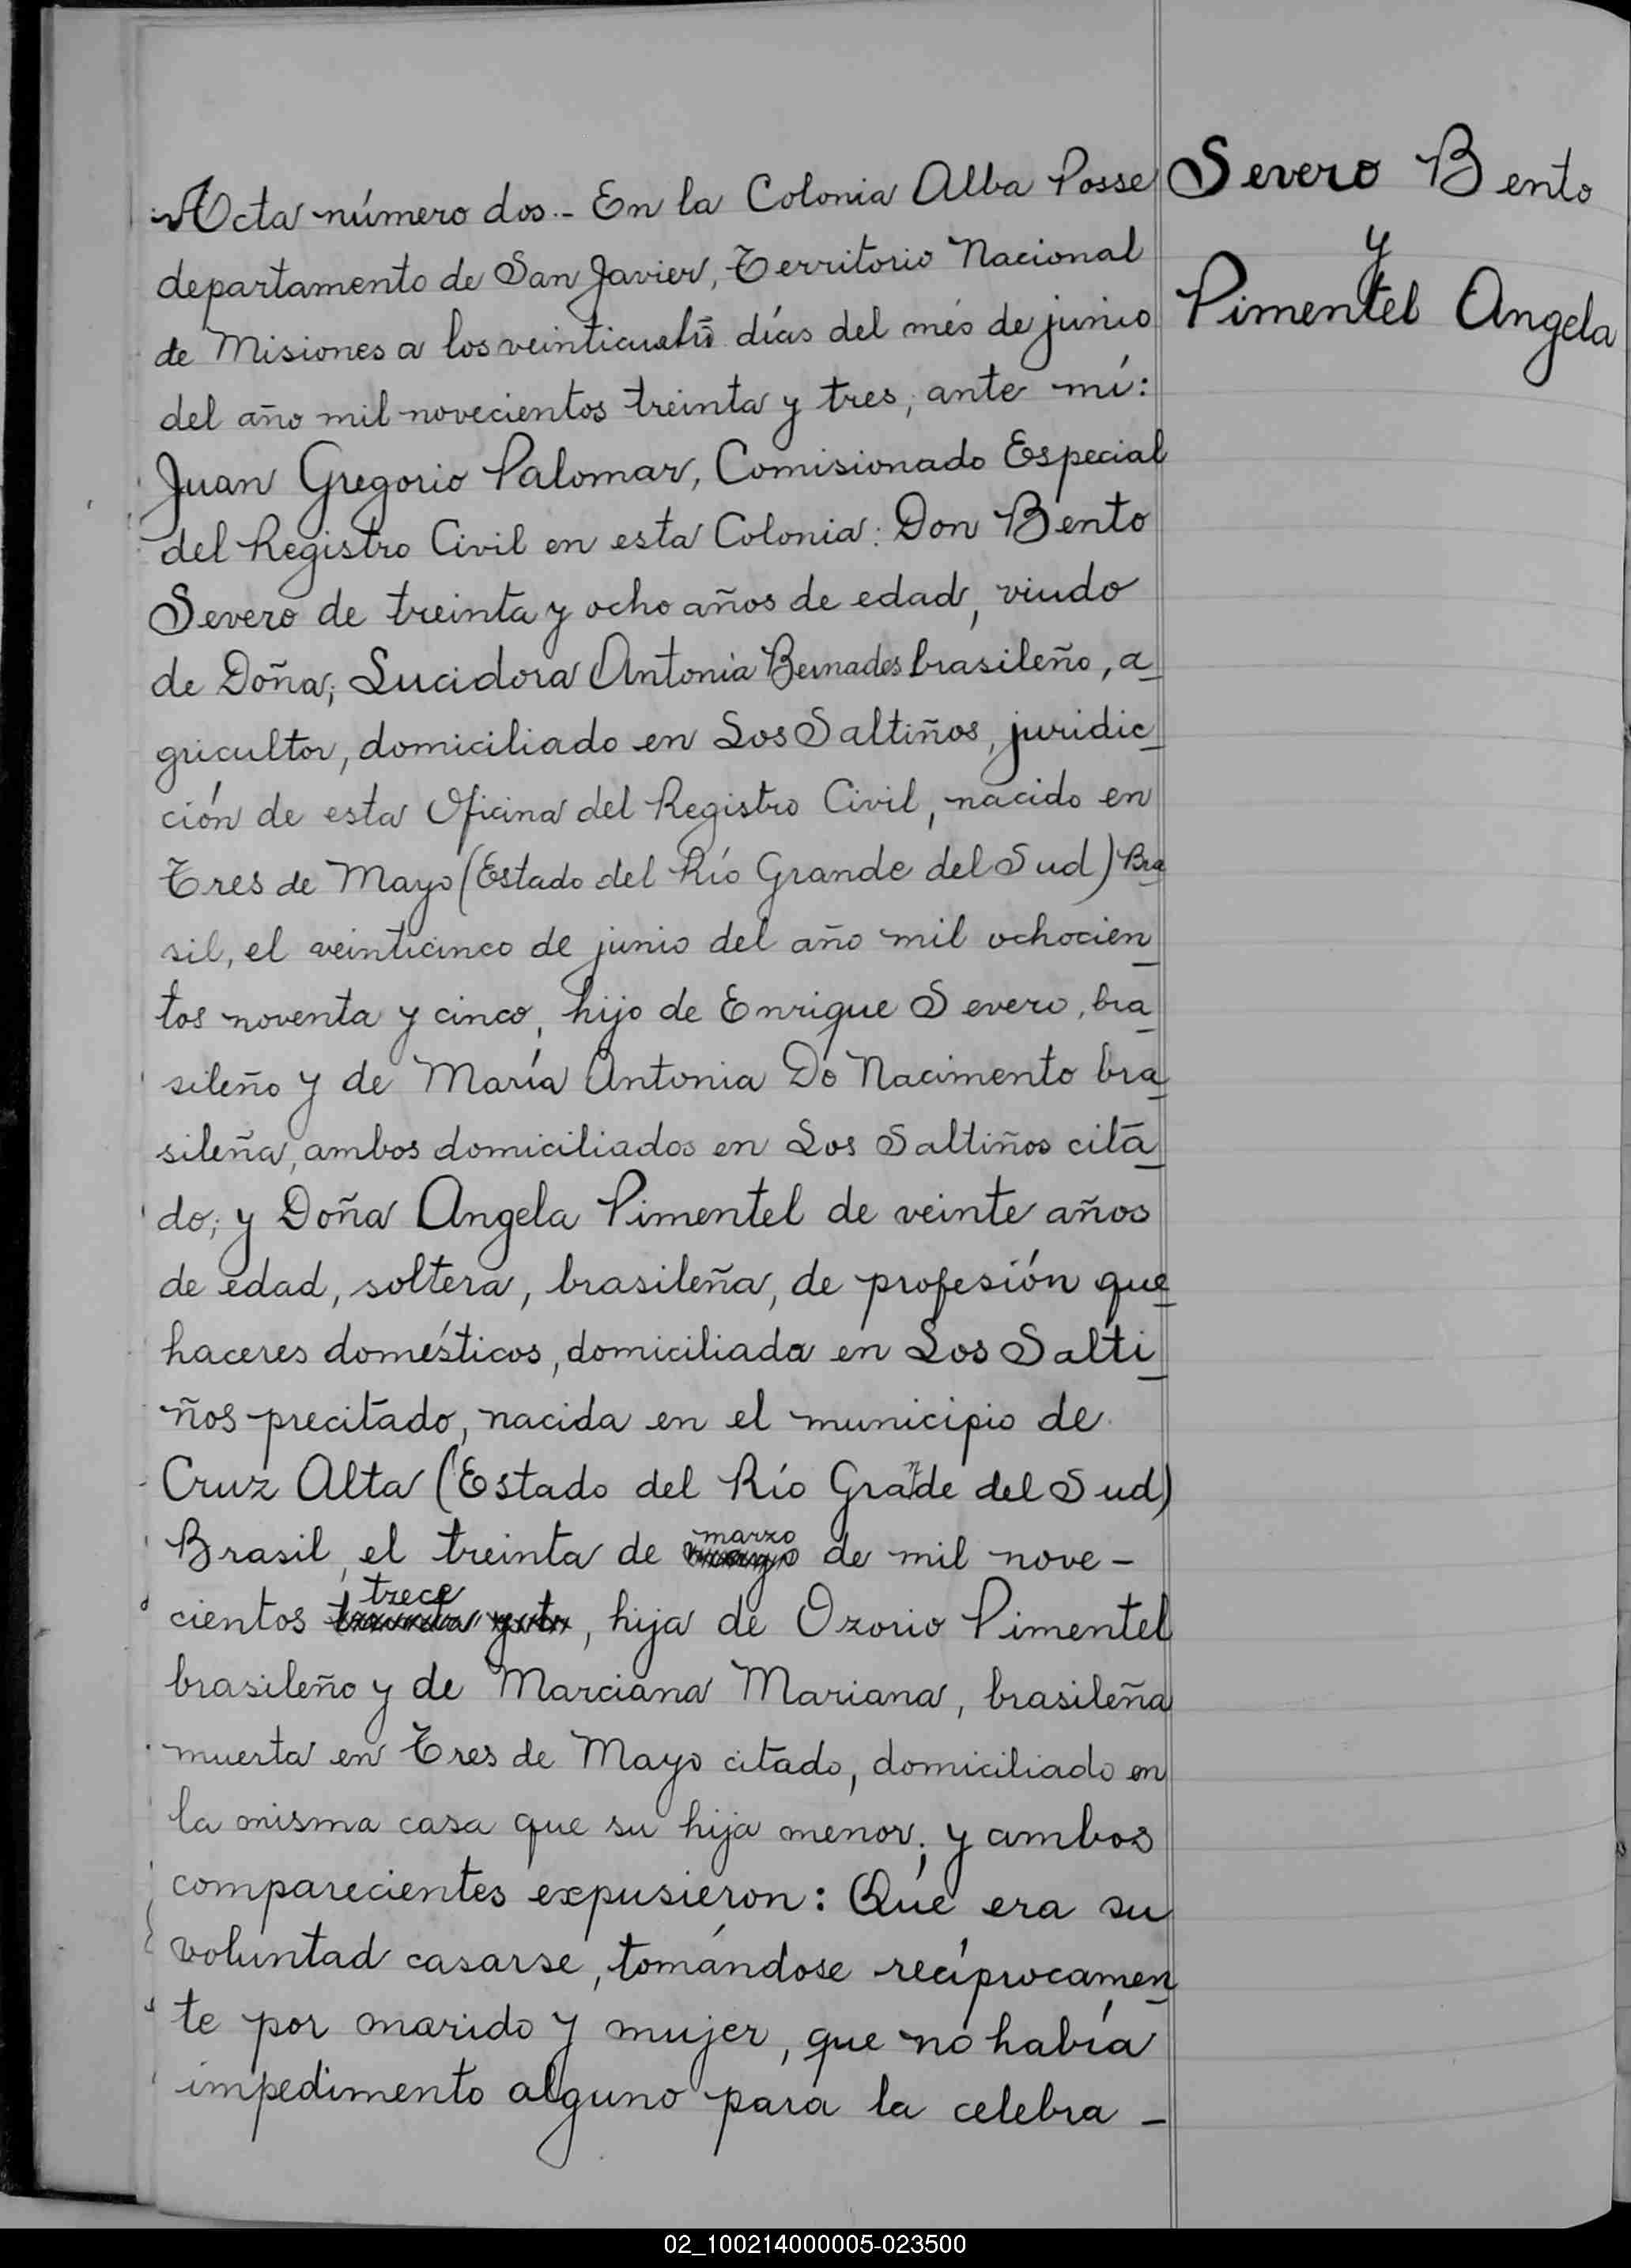 Severo Bento
y
Pimentel Angela
Acta número dos.- En la Colonia Alba Posse
departamento de San Javier, Territorio Nacional
de Misiones a los veinticuatro días del més de junio
del año mil novecientos treinta y tres, ante mí:
Juan Gregorio Palomar, Comisionado Especial
del Registro Civil en esta Colonia: Don Bento
Severo de treinta y ocho años de edad, viudo
de Doña; Lucidora Antonia Bernades brasileño, a
gricultor, domiciliado en Los Saltiños, juridic
ción de esta Oficina del Registro Civil, nacido en
Tres de Mayo (Estado del Río Grande del Sud) Bra
sil, el veinticinco de junio del año mil ochocien
tos noventa y cinco, hijo de Enrique Severo, bra
sileño y de María Antonia Do Nacimento bra
sileña, ambos domiciliados en Los Saltiños cita
do; y Doña Angela Pimentel de veinte años
de edad, soltera, brasileña, de profesión que
haceres domésticos, domiciliada en Los Salti
ños precitado, nacida en el municipio de
Cruz Alta (Estado del Río Grande del Sud)
Brasil, el treinta de marzo de mil nove-
cientos trece, hija de Ozorio Pimentel
brasileño y de Marciana Mariana, brasileña
muerta en Tres de Mayo citado, domiciliado en
la misma casa que su hija menor; y ambos
comparecientes expusieron: Qué era su
voluntad casarse, tomándose recíprocamen
te por marido y mujer, que no había
impedimento alguno para la celebra-
02_100214000005-023500